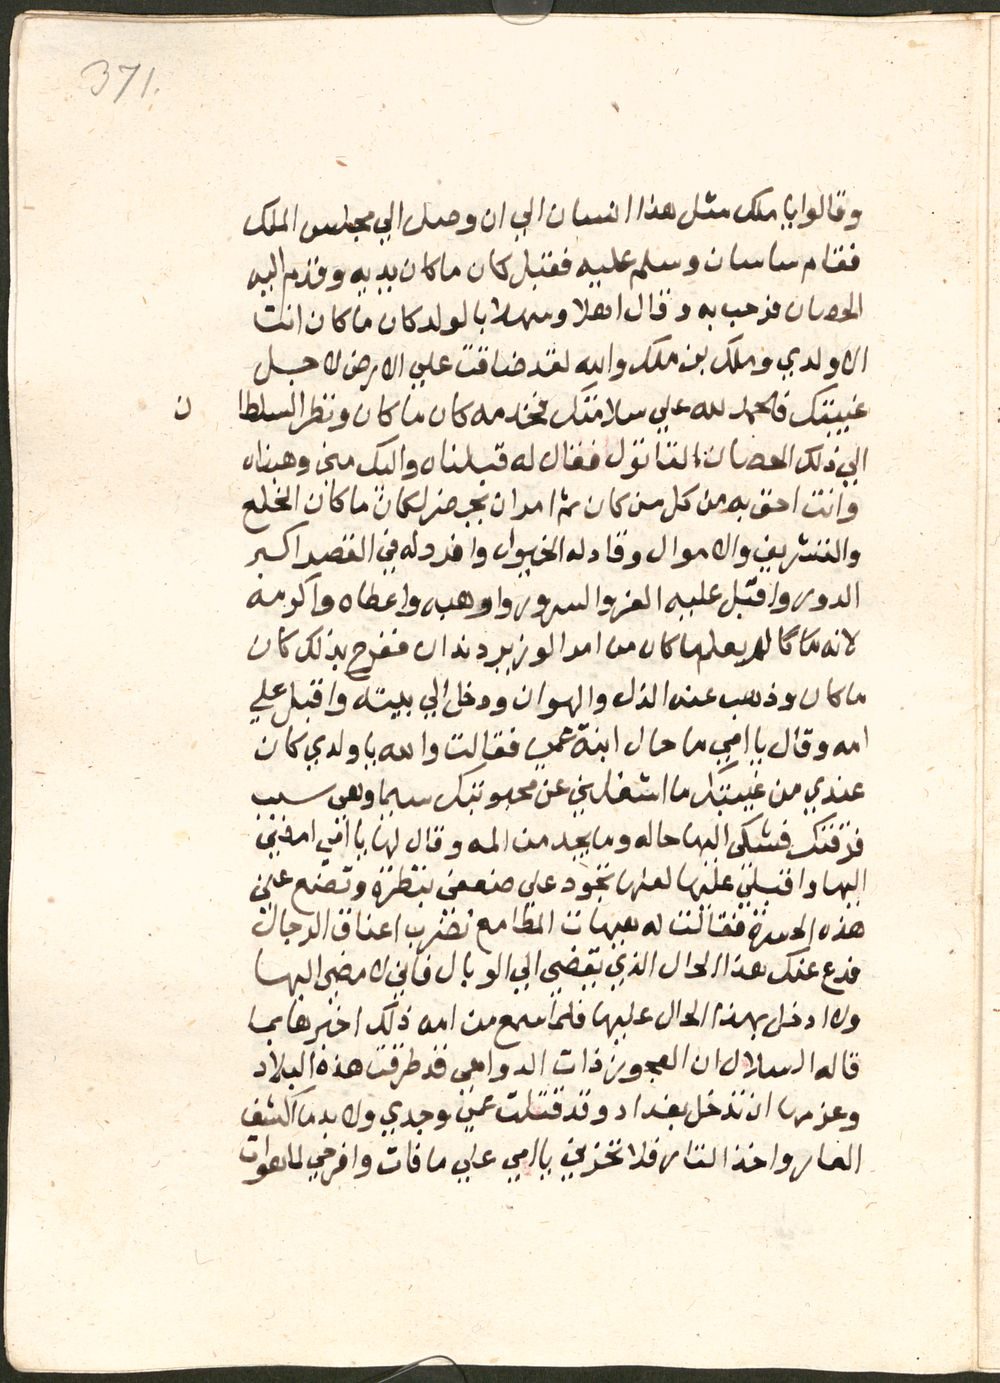 371.
وقالوا يا ملك مثل هذا انسان الي ان وصل الي مجلس الملك
فقام ساسان وسلم عليه فقبل كان ماكان يديه وقدم اليه
الحصان فرحب به وقال اهلا وسهلا بالولد كان ماكان انت
الا ولدي وملك بن ملك والله لقد ضاقت علي الارض لاجل
غيبتك فالحمد لله علي سلامتك فخدمه كان ماكان ونظر السلطا ن
الي ذلك الحصان القاتول فقال له قبلناه واليك منحـ وهبناه
وانت احق به من كل من كان ثم امر ان يحضر لكان ماكان الخلع
والتشريف والاموال وقاد له الخيول وافرد له في القصر اكبر
الدور واقبل عليه العز والسرور واوهبه واعطاه واكرمه
لانه كان يعلم ماكان من امر الوزير دندان ففرح بذلك كان
ماكان وذهب عنه الذل والهوان ودخل الي بيته واقبل علي
امه وقال يا امي ما حال ابنة عمي فقالت والله يا ولدي كان
عندي من غيبتك ما اشغلني عن محبوبتك سيما وهي سبب
فرقتك فشكي اليها حاله وما يجد من المه وقال لها يا امي امضي
اليها واقبلي عليها لعلها تجود علي ضعفي بنظرة وتصنع عني
هذه الحسرة فقالت له هيهات المطامع تضرب اعناق الرجال
فدع عنك هذا الحال الذي يقضي الي الوبال فاني لا امضي اليها
ولا ادخل بهذا الحال عليها فلما سمع من امه ذلك اخبرها بما
قاله السلال ان العجوز ذات الدواهي قد طرقت هذه البلاد
وعزمها ان تدخل بغداد وقد قتلت عمي وجدي ولا بد ما اكشف
العار واخذ الثار فلا تحزني يا امي علي ما فات وافرحي لما هوات